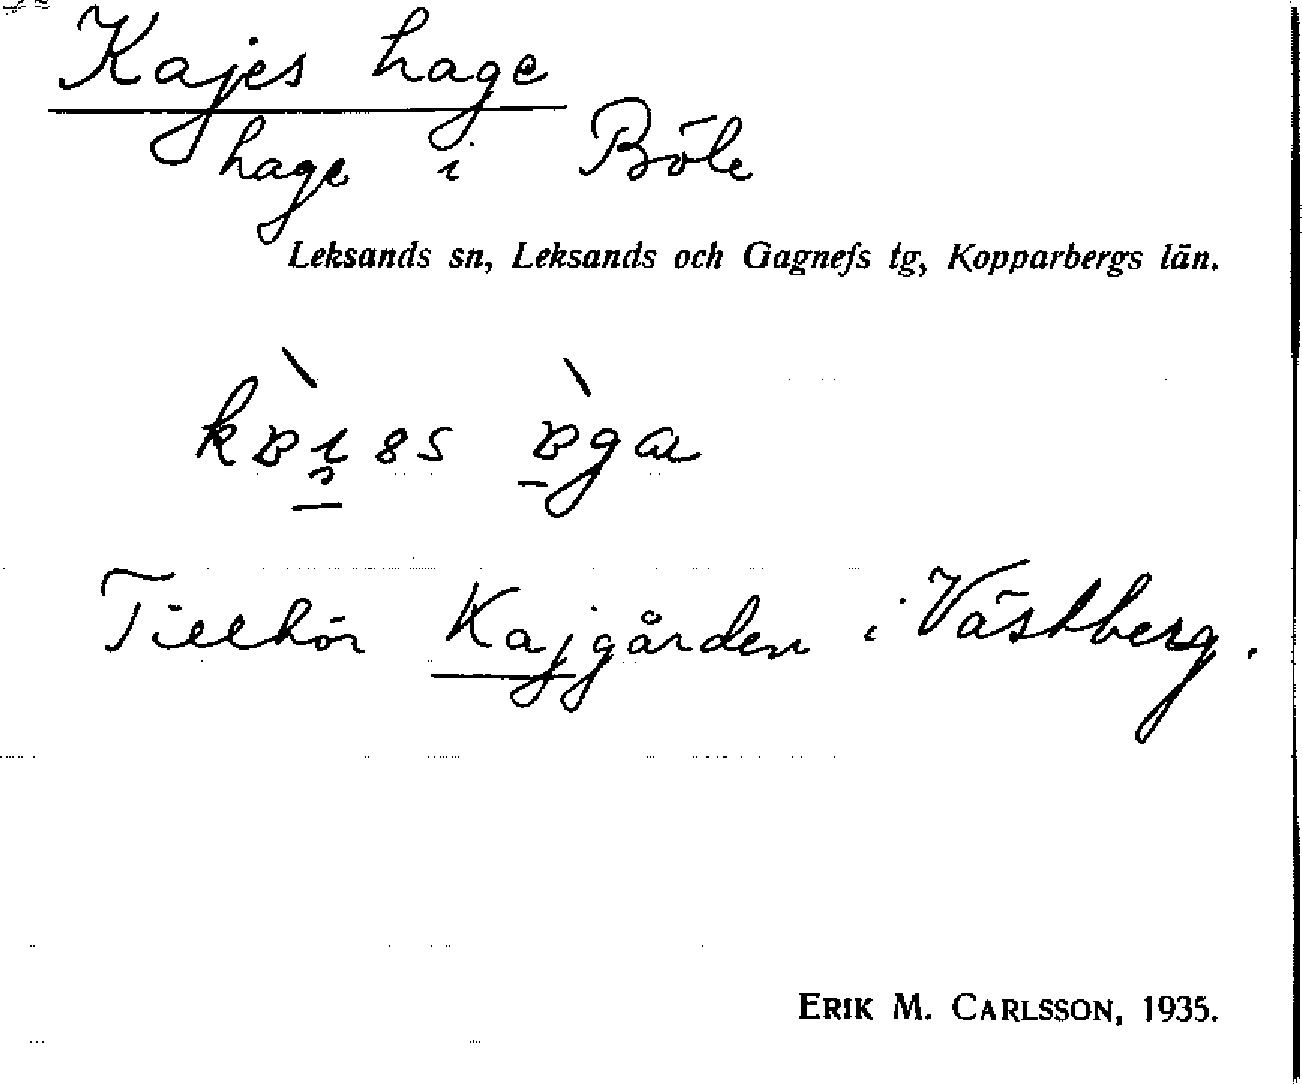 Kajes hage
hage i Böle
Leksands sn, Leksands och Gagnefs tg, Kopparbergs län.
Tillhör Kajgården i Västberg.
ERIK M. CARLSSON, 1935.